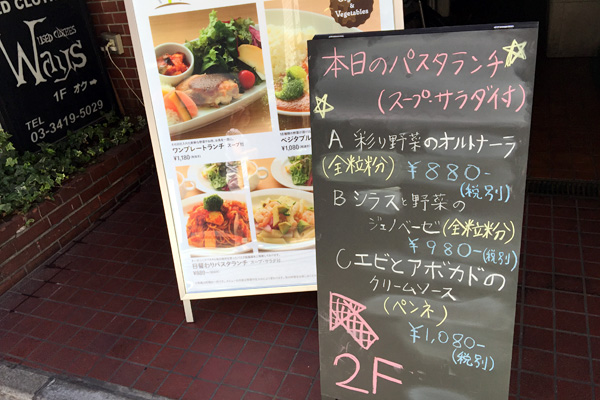 USED CLOTHING
Ways
1F オク
TEL
03-3419-5029
& Vegetables
ワンプレートランチ スープ付
¥1,180
ベジタブル
日替わりパスタランチ スープ・サラダ付
本日のパスタランチ
(スープ・サラダ付)
A 彩り野菜のオルトナーラ
(全粒粉) ¥880-
(税別)
B シラスと野菜の
ジェノベーゼ(全粒粉)
¥980-(税別)
C エビとアボカドの
クリームソース
(ペンネ)
¥1,080-
(税別)
2F